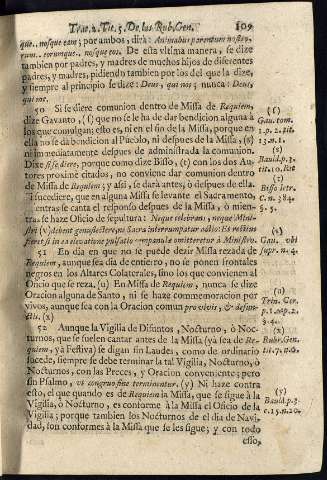 Trat. 2. Tit. 5. De las Rub. Gen. 109
que.. nosque eam; por ambos, dirá: Animabus parentum nostro-
rum.. eorumque.. nosque eos. De esta vltima manera, se dize
tambien por padres, y madres de muchos hijos de diferentes
padres, y madres, pidiendo tambien por los del que la dize,
y siempre al principio se dize: Deus, qui nos; nunca: Deus,
qui me.
50 Si se diere comunion dentro de Missa de Requiem,
dize Gavanto, (s) que no se le ha de dar bendicion alguna à
los que comulgan; esto es, ni en el fin de la Missa, porque en
ella no se dà bendicion al Pueblo, ni despues de la Missa, (s)
ni immediatamente despues de administrada la comunion.
Dixe si se diere, porque como dize Bisso, (t) con los dos Au-
tores proxime citados, no conviene dar comunion dentro
de Missa de Requiem; y assi, se darà antes, ò despues de ella.
si sucediere, que en alguna Missa se levante al Sacramento,
entras se canta el responso despues de la Missa, ò mien-
tras se haze Oficio de sepultura: Neque celebrans, neque Mini-
stri (v) debent genuflectere, ni Sacra interrumpatur
51 En dia en que no se puede dezir Missa rezada de
Requiem, aunque sea dia de entierro, no se ponen frontales
negros en los Altares Colaterales, sino los que convienen al
Oficio que se reza. (u) En Missa de Requiem, nunca se dize
Oracion alguna de Santo, ni se haze commemoracion por
vivos, aunque sea con la Oracion comun pro vivis, & defun-
ctis. (x)
52 Aunque la Vigilia de Difuntos, Nocturno, ò Noc-
turnos, que se suelen cantar antes de la Missa (ya sea de Re-
quiem, ya Festiva) se digan sin Laudes, como de ordinario
sucede, siempre se debe terminar la tal Vigilia, Nocturno, ò
Nocturnos, con las Preces, y Oracion conveniente; pero
sin Psalmo, vt congruo fine terminentur. (y) Ni haze contra
esto, el que quando es de Requiem la Missa, que se sigue à la
Vigilia, ò Nocturno, es conforme à la Missa el Oficio de la
Vigilia; porque tambien los Nocturnos de el dia de Navi-
dad, son conformes à la Missa que se les sigue; y con todo
esso,
(s)
Gau. tom.
1. p. 2. tit.
13. n.
(s)
Bauld. p. 3.
tit. 10.
(t)
Bisso letr.
C. n. 284.
§. 5.
(v)
Gau. vbi
supr. n. 4.
(u)
Ger.
p. 1. sep. 2.
§. 4.
(x)
Rubr. Gen.
tit. 7. n. 6.
(y)
Bauld. p. 3.
c. 15. n. 20.